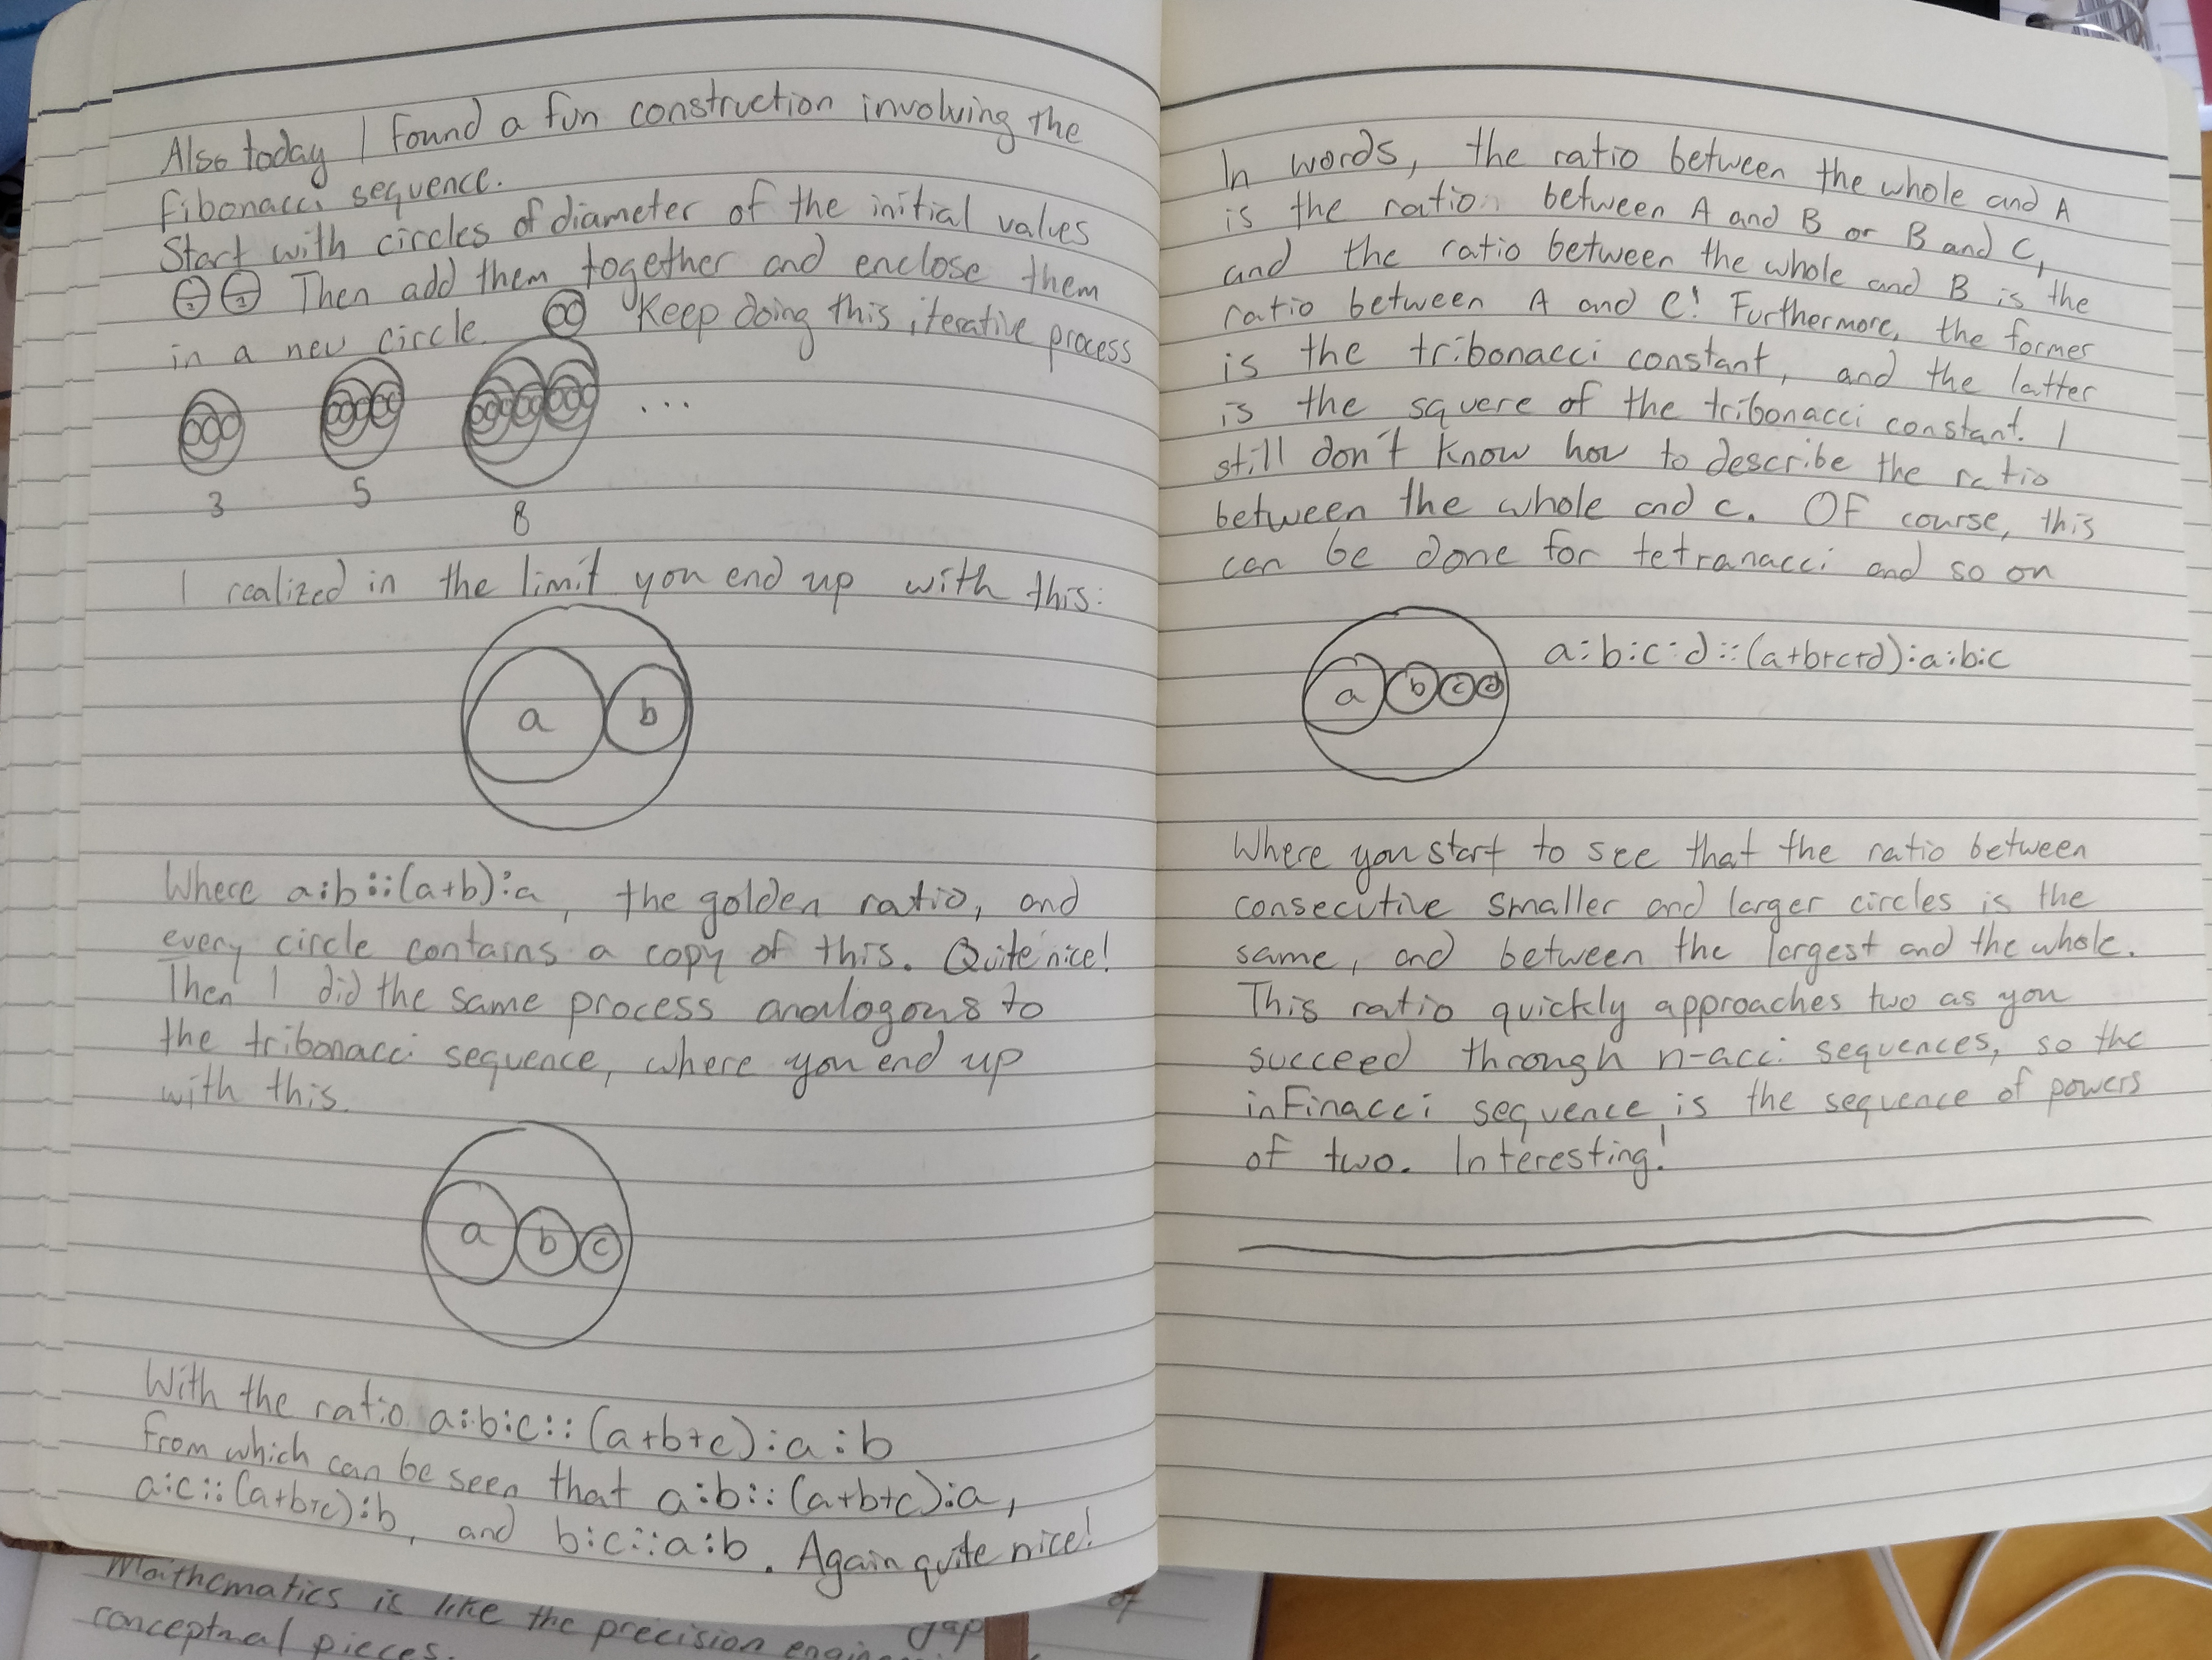 Also today I found a fun construction involving the
fibonacci sequence.
Start with circles of diameter of the initial values
Then add them together and enclose them
in a new circle. Keep doing this iterative process
...
3 5 8
I realized in the limit you end up with this:
a b
Where a:b::(a+b):a, the golden ratio, and
every circle contains a copy of this. Quite nice!
Then I did the same process analogous to
the tribonacci sequence, where you end up
with this.
a b c
With the ratio a:b:c::(a+b+c):a:b
from which can be seen that a:b::(a+b+c):a,
a:c::(a+b+c):b, and b:c::a:b. Again quite nice!
In words, the ratio between the whole and A
is the ratio between A and B or B and C,
and the ratio between the whole and B is the
ratio between A and C! Furthermore, the former
is the tribonacci constant, and the latter
is the squere of the tribonacci constant. I
still don't know how to describe the ratio
between the whole and c. Of course, this
can be done for tetranacci and so on
a b c d a:b:c:d::(a+b+c+d):a:b:c
Where you start to see that the ratio between
consecutive smaller and larger circles is the
same, and between the largest and the whole.
This ratio quickly approaches two as you
succeed through n-acci sequences, so the
infinacci sequence is the sequence of powers
of two. Interesting!
Mathematics is like the precision
conceptual pieces.
gap
of